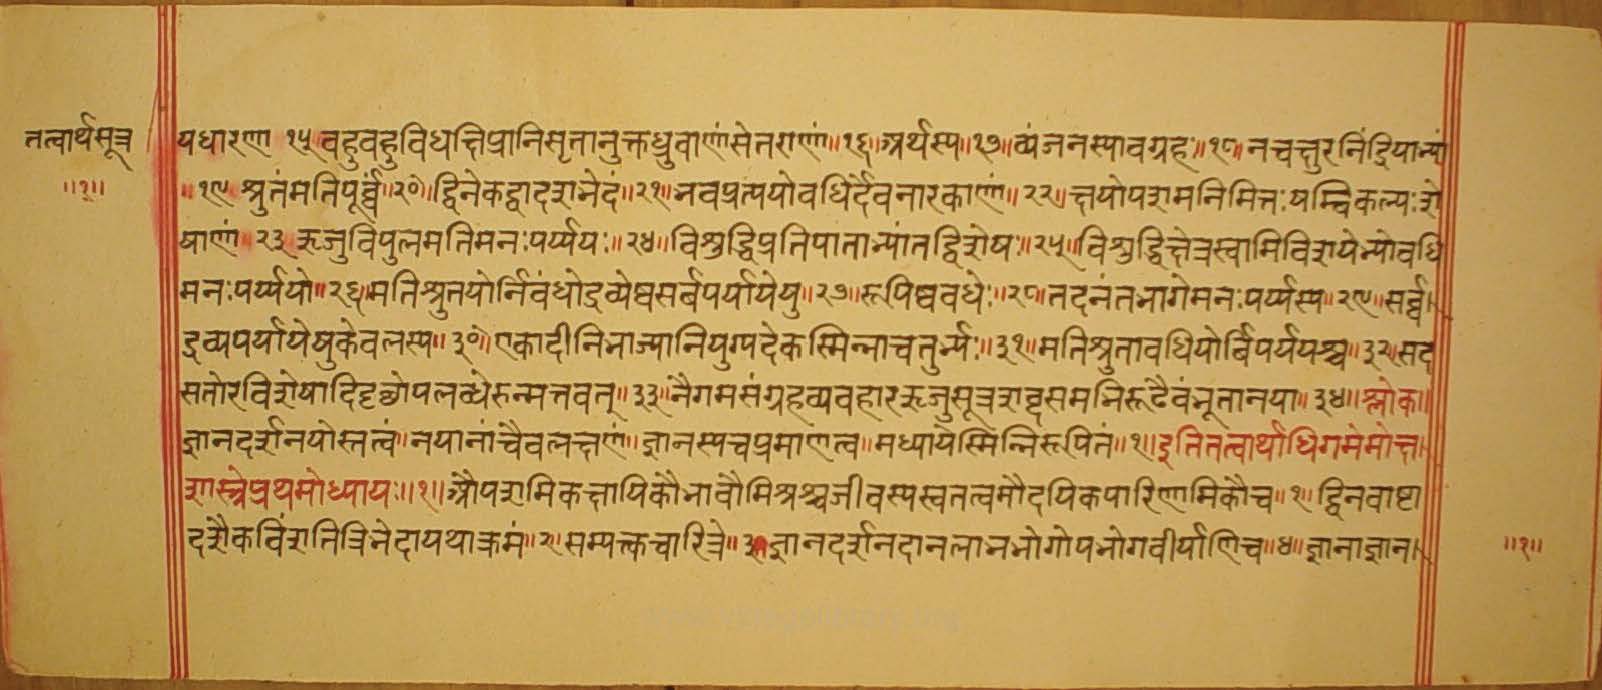 तत्वार्थसूत्र
॥१॥
यधारणा १५ वहुवहुविधक्षिप्रानिसृतानुक्तध्रुवाणांसेतराणां॥१६॥अर्थस्य॥१७॥व्यंजनस्यावग्रहः॥१८॥नचक्षुरनिंद्रियाभ्यां
॥१९॥श्रुतंमतिपूर्व्वं॥२०॥द्विनेकद्वादशभेदं॥२१॥भवप्रत्ययोवधिर्देवनारकाणां॥२२॥क्षयोपशमनिमित्तःषड्विकल्पःशे
षाणां॥२३॥ऋजुविपुलमतिमनःपर्य्ययः॥२४॥विशुद्धिप्रतिपाताभ्यांतद्विशेषः॥२५॥विशुद्धिक्षेत्रस्वामिविशयेभ्योवधि
मनःपर्य्ययो॥२६॥मतिश्रुतयोर्निवंधोद्रव्येष्वसर्बपर्यायेषु॥२७॥रूपिष्ववधेः॥२८॥तदनंतभागेमनःपर्य्यस्य॥२९॥सर्व्व
द्रव्यपर्यायेषुकेवलस्य॥३०॥एकादीनिभाज्यानियुग्पदेकस्मिन्नाचतुर्भ्यः॥३१॥मतिश्रुतावधियोर्बिपर्ययश्च॥३२॥सद
सतोरविशेषादिदृछोपलव्धेरुन्मत्तवत्॥३३॥नैगमसंग्रहव्यवहारऋजुसूत्रशब्दसमभिरूढैवंभूतानया॥३४॥श्लोक॥
ज्ञानदर्शनयोस्तत्वं॥नयानांचैवलक्षणं॥ज्ञानस्यचप्रमाणत्व॥मध्यायेस्मिन्निरूपितं॥१॥इतितत्वार्थाधिगमेमोक्ष
शास्त्रेप्रथमोध्यायः॥१॥औपशमिकक्षायिकौभावौमिश्रश्चजीवस्यस्वतत्वमौदयिकपारिणामिकौच॥१॥द्विनवाष्टा
दशैकविंशतित्रिभेदायथाक्रमं॥२॥सम्यक्तचारित्रे॥३॥ज्ञानदर्शनदानलाभभोगोपभोगवीर्याणिच॥४॥ज्ञानाज्ञान
॥१॥